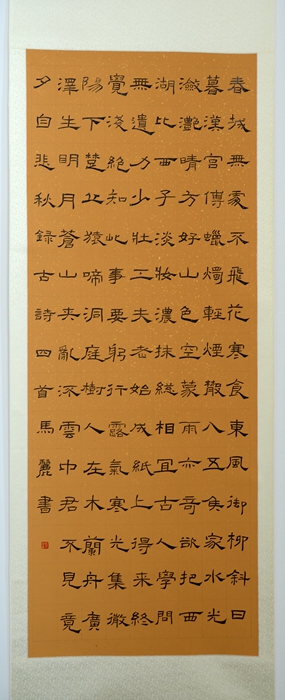 春城無處不飛花寒食東風御柳斜日
暮漢宮傳蠟燭輕煙散入五侯家水光
瀲灩晴方好山色空蒙雨亦奇欲把西
湖比西子淡妝濃抹總相宜古人學問
無遺力少壯工夫老始成紙上得來終
覺淺絕知此事要躬行露氣寒光集微
陽下楚丘猿啼洞庭樹人在木蘭舟廣
澤生明月蒼山夾亂流雲中君不見竟
夕自悲秋錄古詩四首馬麗書